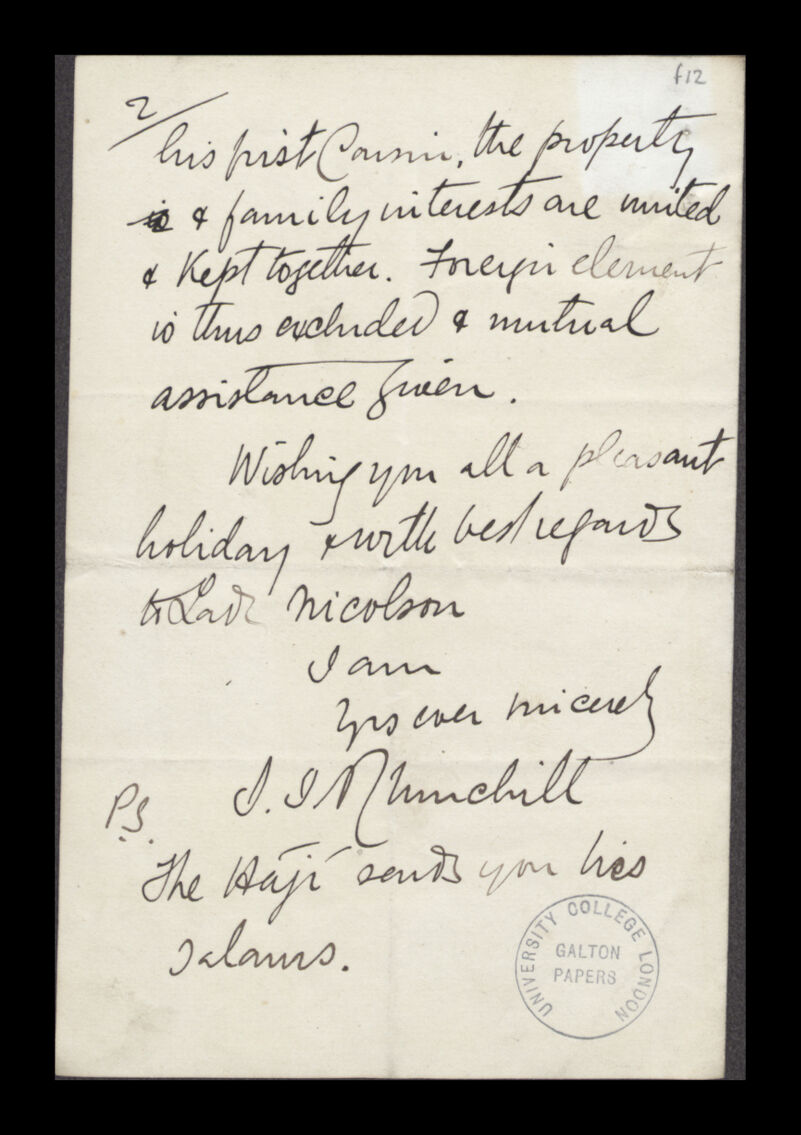 f12
2/
his first Cousin, the property
is & family interests are united
& Kept together. Foreign element
is thus excluded & mutual
assistance given.
Wishing you all a pleasant
holiday & with best regards
to Lady Nicolson
I am
Yrs ever sincerely
P.S.
The Hāji sends you his
salams.
UNIVERSITY COLLEGE LONDON
GALTON
PAPERS